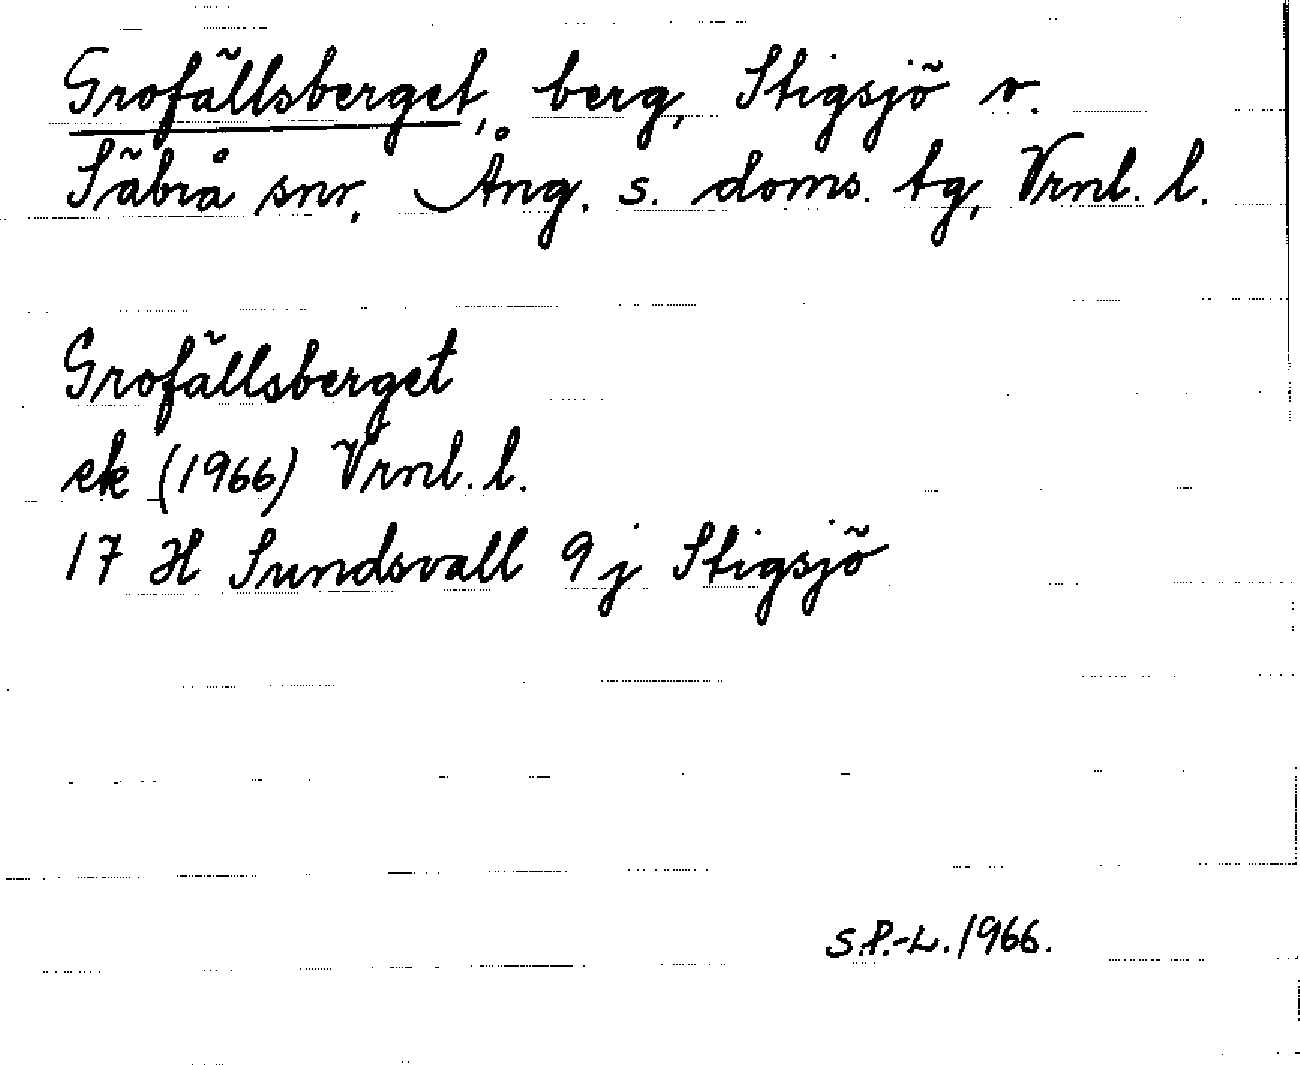 Grofällsberget, berg, Stigsjö o.
Säbrå snr, Ång. s. doms. tg, Vrnl. l.
Grofällsberget
ek (1966) Vrnl. l.
17 H Sundsvall 9 j Stigsjö
S.P.-L. 1966.